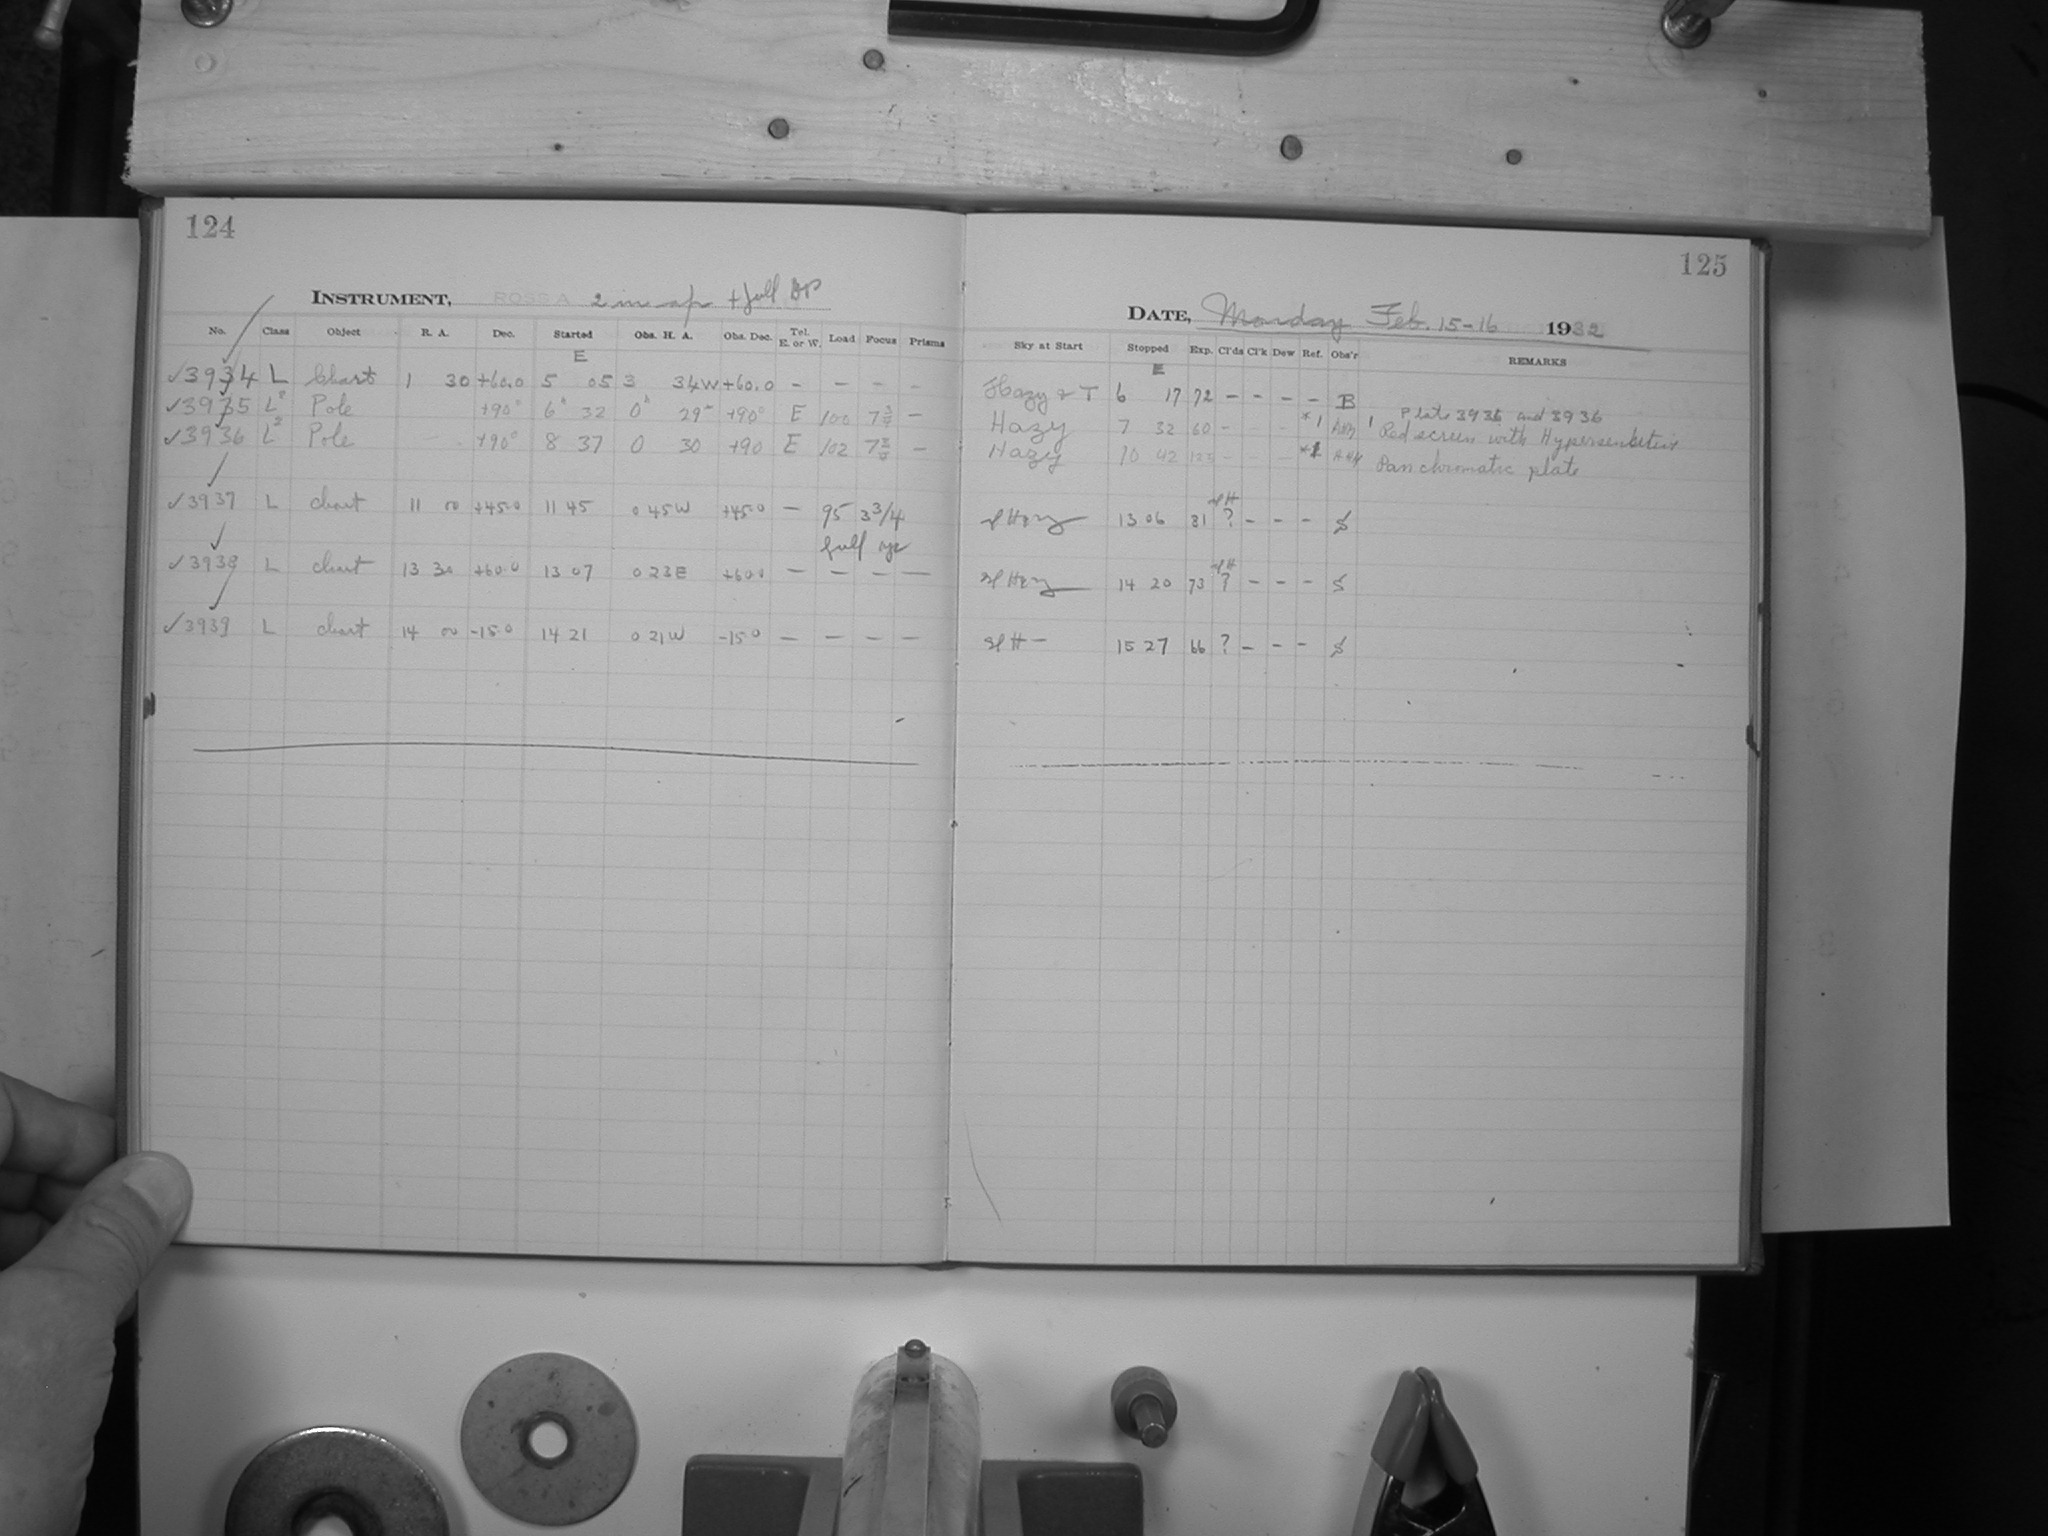 124
INSTRUMENT, ROSS A 2 in ap + full
No. Class Object R. A. Dec. Started Obs. H. A. Obs. Dec. Tel. E. or W. Load Focus Prisms
E
✓3934 L Chart 1 30 +60.0 5 05 3 34W +60.0 - - - -
✓3935 L Pole +90° 6h 32 0h 29m +90° E 100 7 3/4 -
✓3936 L2 Pole +90° 8 37 0 30 +90 E 102 7 3/4 -
✓3937 L chart 11 00 +45.0 11 45 0 45W +45.0 - 95 3 3/4
full ap
✓3938 L chart 13 30 +60.0 13 07 0 23E +60.0 - - - -
✓3939 L chart 14 00 -15.0 14 21 0 21W -15.0 - - - -
125
DATE, Monday Feb. 15-16 1932
Sky at Start Stopped Exp. Cl'ds Cl'k Dew Ref. Obs'r REMARKS
E
Hazy & T 6 17 72 - - - - B
Hazy 7 32 60 - - - *1 1 Plate 3935 and 3936
Red screen with Hypersensitive
Hazy 10 42 125 - - - *1 Panchromatic plate
sl H
sl Hazy 13 06 81 ? - - - S
sl H
sl Hazy 14 20 73 ? - - - S
sl H - 15 27 66 ? - - - S